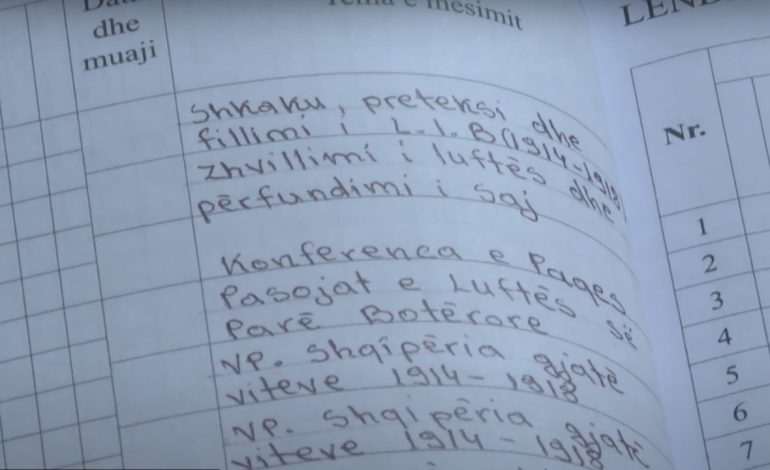 dhe
muaji
Tema e mësimit
Nr.
Shkaku, preteksi dhe
fillimi i L.I.B(1914-1918
zhvillimi i luftës dhe
përfundimi i saj
Konferenca e Paqes
Pasojat e Luftës së
Parë Botërore
VP. Shqipëria gjatë
viteve 1914-1918
VP. Shqipëria gjatë
viteve 1914-1918
1
2
3
4
5
6
7